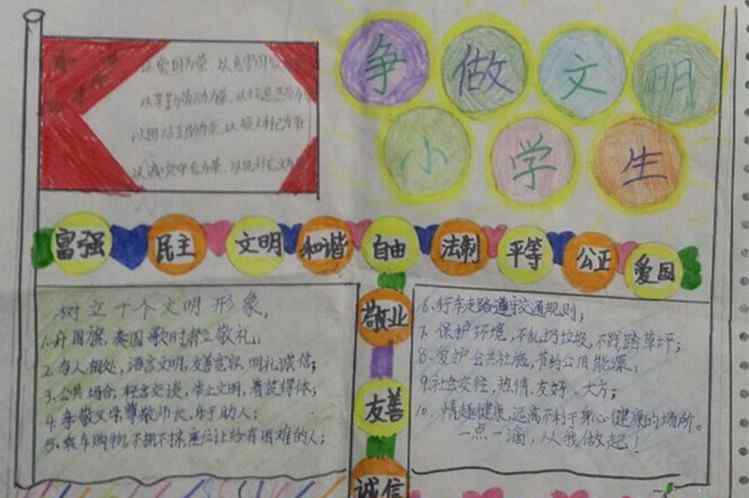 争做文明
小学生
以爱国为荣、以
以辛勤劳动为荣、以
以团结互助为荣、以损人利己为
以诚实守信为荣、以
富强 民主 文明 和谐 自由 法制 平等 公正 爱国
敬业
友善
诚信
树立十个文明形象,
1.升国旗,奏国歌时肃立敬礼;
2.与人相处,语言文明,友善宽容,明礼诚信;
3.公共场合,轻言交谈,举止文明,着装得体;
4.孝敬父母,尊敬师长,乐于助人;
5.乘车购物,不拥不挤,座位让给有困难的人;
6.行车走路遵守交通规则;
7.保护环境,不乱扔垃圾,不践踏草坪;
8.爱护公共设施,节约公用能源;
9.社会交往,热情、友好、大方;
10.情趣健康,远离不利于身心健康的场所。
一点一滴,从我做起!